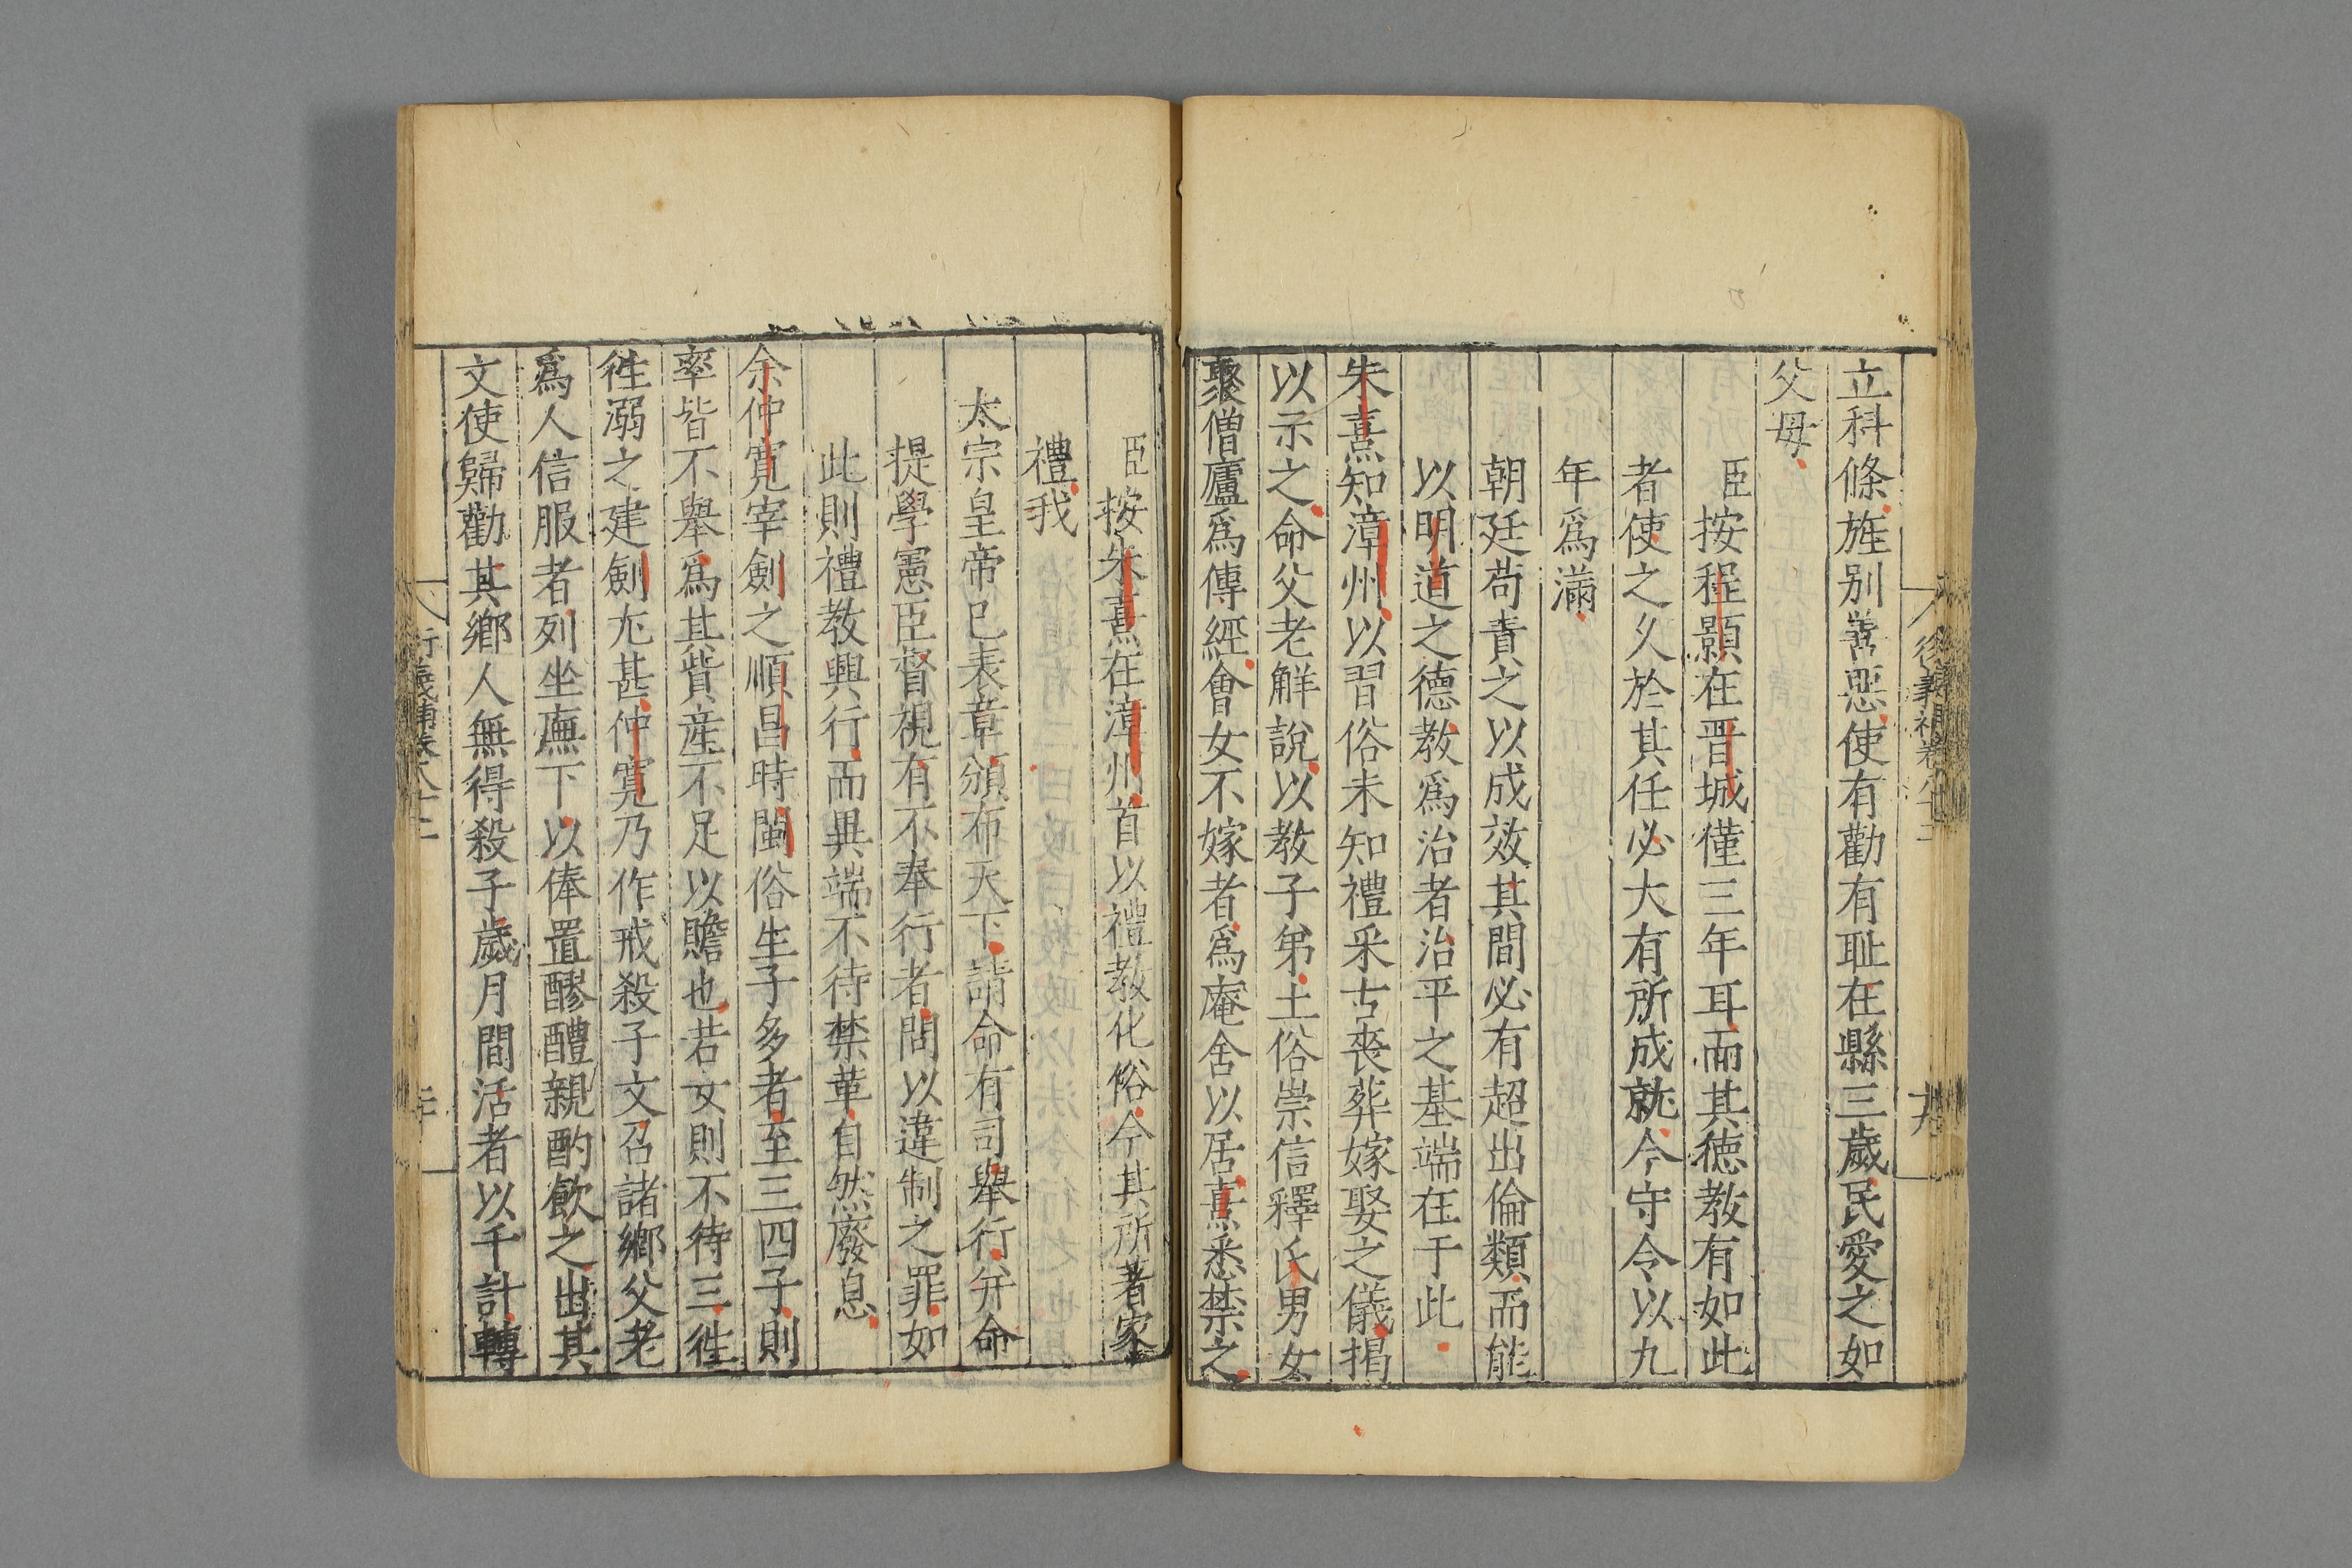 立科條旌別善惡使有勸有耻在縣三歲民愛之如
父母
臣按程顥在晋城僅三年耳而其德教有如此
者使之久於其任必大有所成就今守令以九
年爲滿
朝廷苟責之以成效其間必有超出倫類而能
以明道之德教爲治者治平之基端在于此
朱熹知漳州以習俗未知禮采古喪葬嫁娶之儀揭
以示之命父老解說以教子弟土俗崇信釋氏男女
聚僧廬爲傳經會女不嫁者爲庵舍以居熹悉禁之
臣按朱熹在漳州首以禮教化俗今其所著家
禮我
太宗皇帝已表章頒布天下請命有司舉行并命
提學憲臣督視有不奉行者問以違制之罪如
此則禮教興行而異端不待禁革自然廢息
余仲寬宰劍之順昌時閩俗生子多者至三四子則
率皆不舉爲其貲産不足以贍也若女則不待三徃
徃溺之建劍尤甚仲寬乃作戒殺子文召諸鄉父老
爲人信服者列坐廡下以俸置醪醴親酌飲之出其
文使歸勸其鄉人無得殺子歲月間活者以千計轉